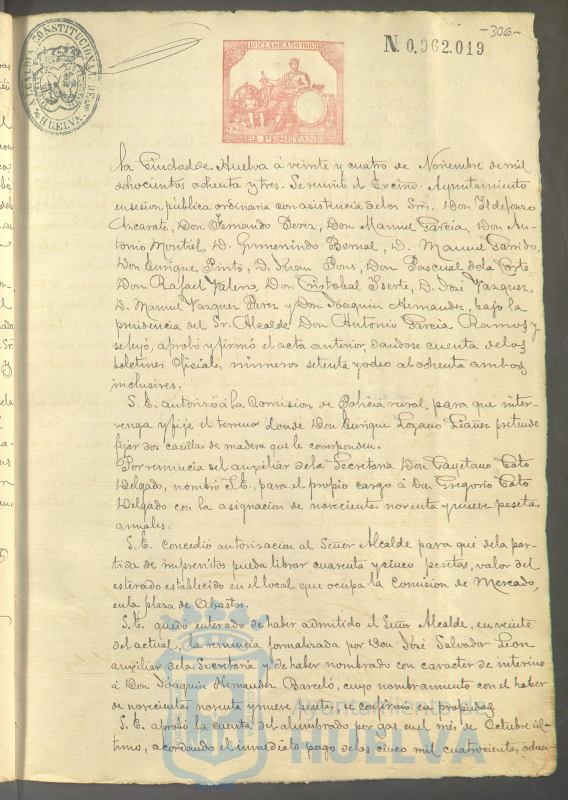 -306-
N. 0.962.019
10ª CLASE AÑO 1883
2 PESETAS
ALCALDIA CONSTITUCIONAL DE HUELVA
la Ciudad de Huelva á veinte y cuatro de Noviembre de mil
ochocientos ochenta y tres. Se reunió el Excmo. Ayuntamiento
en sesion publica ordinaria con asistencia de los Sres. Don Ildefonso
Azcarate, Don Fernando Perez, Don Manuel Garcia, Don An-
tonio Montiel, D. Gumersindo Bernal, D. Manuel Garrido,
Don Enrique Pinto, D. Juan Pons, Don Pascual de la Corte,
Don Rafael Valero, Don Cristobal Iserte, D. José Vazquez,
D. Manuel Vazquez Perez y Don Joaquin Hernandez, bajo la
presidencia del Sr. Alcalde Don Antonio Garcia Ramos y
se leyó, aprobó y firmó el acta anterior, dandose cuenta de los
boletines oficiales números setenta y ocho al ochenta ambos
inclusives.
S. E. autorizó á la Comision de Policia rural para que inter-
venga y fije el terreno donde Don Enrique Lozano Liañez pretende
fijar dos casillas de madera que le corresponden.
Por renuncia del auxiliar de la Secretaria Don Cayetano Cato
Delgado, nombró S. E., para el propio cargo á Don Gregorio Cato
Delgado con la asignacion de novecientas noventa y nueve pesetas
anuales.
S. E. concedió autorizacion al Señor Alcalde para que de la par-
tida de imprevistos pueda librar cuarenta y cinco pesetas, valor del
esterado establecido en el local que ocupa la Comision de Mercado,
en la plaza de Abastos.
S. E. quedó enterado de haber admitido el Señor Alcalde, en veinte
del actual, la renuncia formalizada por Don José Salvador Leon
auxiliar de la Secretaria y de haber nombrado con caracter de interino
á Don Joaquin Hernandez Barceló, cuyo nombramiento con el haber
de novecientas noventa y nueve pesetas, se confirmó en propiedad.
S. E. aprobó la cuenta del alumbrado por gas en el mes de Octubre úl-
timo, acordando el inmediato pago de las cinco mil cuatrocientas ochen-
Ayuntamiento de
HUELVA